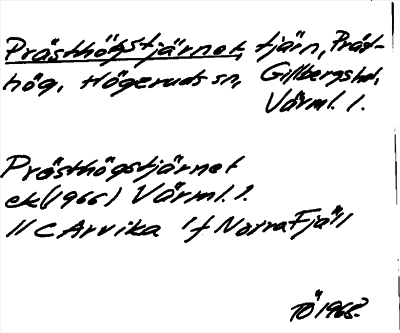 Prästhögstjärnet, tjärn, Präst-
hög, Högeruds sn, Gillbergs hd,
Värml. l.
Prästhögstjärnet
ek (1966) Värml. l.
11 C Arvika 1 f Norra Fjäll
TÖ 1968.